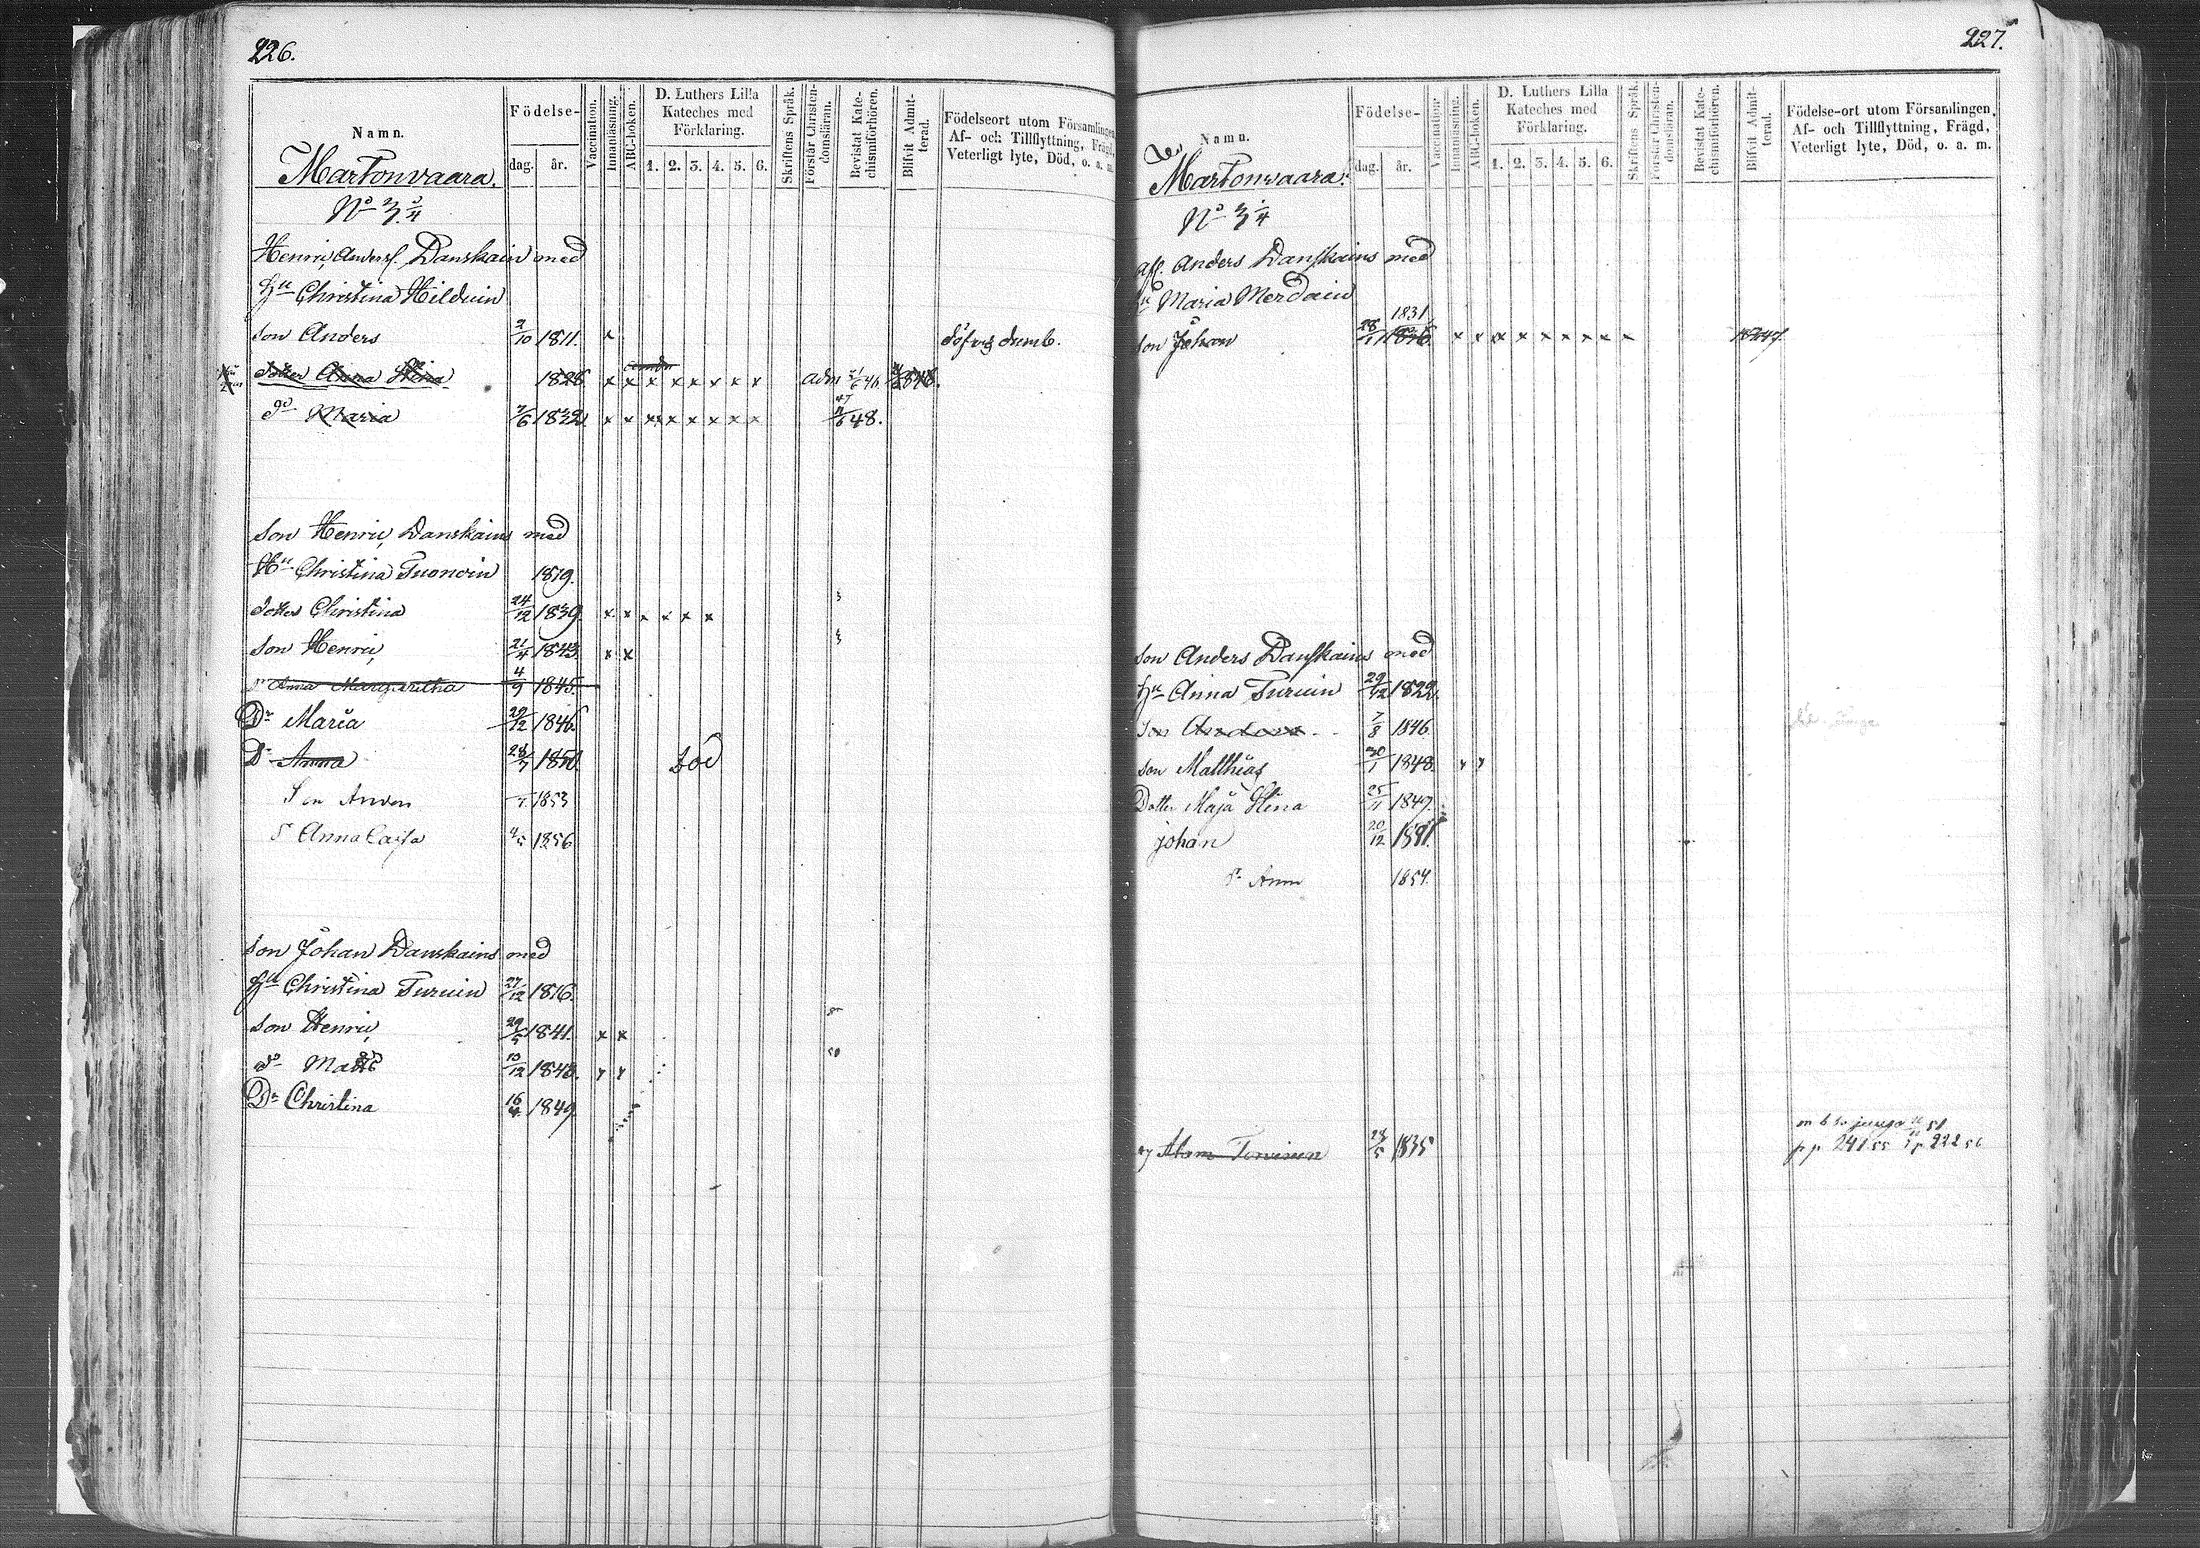 226.
Namn.
Födelse-
dag. år.
Vaccination.
Innanläsning.
ABC-boken.
D. Luthers Lilla
Kateches med
Förklaring.
1. 2. 3. 4. 5. 6.
Skriftens Språk.
Förstår Christen-
domsläran.
Bevistat Kate-
chismiförhören.
Blifvit Admit-
terad.
Födelseort utom Församlingen
Af- och Tillflyttning, Frägd,
Veterligt lyte, Död, o. a. m.
Martonvaara.
No 3. 3/4
Henric Anders. Danskain med
Hu Christina Hilduin
Son Anders 2/10 1811. x döf och dumb.
dotter Anna Stina 1828 x x x x x x x x adm 1848.
do Maria 2/6 1832 x x x x x x x x 48.
Son Henric Danskains med
Hu Christina Tuonoin 1819.
dotter Christina 24/12 1839. x x x x x x
son Henric 21/4 1843. x x
Dr Anna Margaretha 4/9 1845.
Dr Maria 29/12 1846.
Dr Anna 28/7 1850. död
Son Anders 1853
Dr Anna Cajsa 4/5 1856
Son Johan Danskains med
Hu Christina Turuin 27/12 1816.
Son Henric 29/5 1841. x x
do Matts 10/12 1843. x x
Dr Christina 16/4 1849.
227.
Namn.
Födelse-
dag. år.
Vaccination.
Innanläsning.
ABC-boken.
D. Luthers Lilla
Kateches med
Förklaring.
1. 2. 3. 4. 5. 6.
Skriftens Språk.
Förstår Christen-
domsläran.
Bevistat Kate-
chismiförhören.
Blifvit Admit-
terad.
Födelse-ort utom Församlingen,
Af- och Tillflyttning, Frägd,
Veterligt lyte, Död, o. a. m.
Martonvaara.
No 3 1/4
afl. Anders Danskains med
Hu Maria Merdain
1831
Son Johan 28/11 1836. x x x x x x x x x 1847
Son Anders Danskains med
Hu Anna Turuin 29/12 1822.
Son Anders 7/8 1846.
Son Matthias 30/1 1848. x x
Dotter Maja Stina 25/11 1849.
johan 20/12 1851.
Dr Anna 1854.
Adam Turuinen 28/5 1835
m b juuga 51
p p 241 55 p 222 56